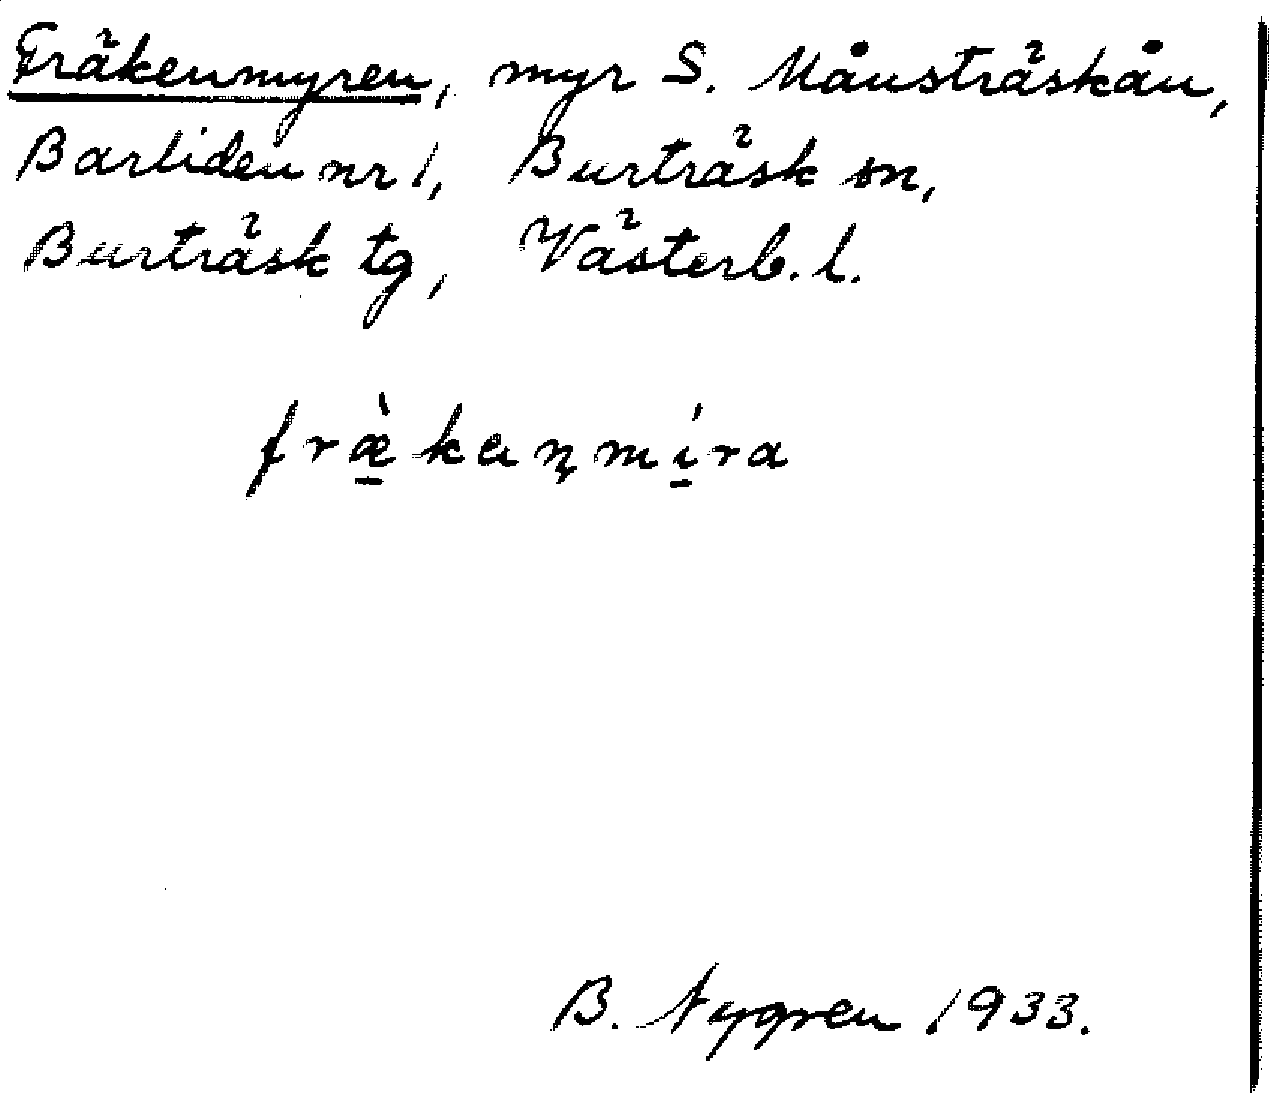 Fräkenmyren, myr S. Månsträskån,
Barliden nr 1, Burträsk sn,
Burträsk tg, Västerb. l.
fræ̱̀kaṇmí̱ra
B. Nygren 1933.